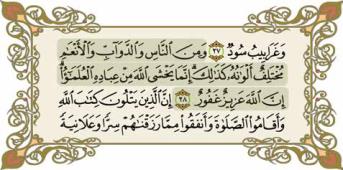 وَغَرَابِيبُ سُودٌ ٢٧ وَمِنَ ٱلنَّاسِ وَٱلدَّوَآبِّ وَٱلْأَنْعَٰمِ
مُخْتَلِفٌ أَلْوَٰنُهُۥ كَذَٰلِكَ إِنَّمَا يَخْشَى ٱللَّهَ مِنْ عِبَادِهِ ٱلْعُلَمَٰٓؤُا۟
إِنَّ ٱللَّهَ عَزِيزٌ غَفُورٌ ٢٨ إِنَّ ٱلَّذِينَ يَتْلُونَ كِتَٰبَ ٱللَّهِ
وَأَقَامُوا۟ ٱلصَّلَوٰةَ وَأَنفَقُوا۟ مِمَّا رَزَقْنَٰهُمْ سِرًّا وَعَلَانِيَةً